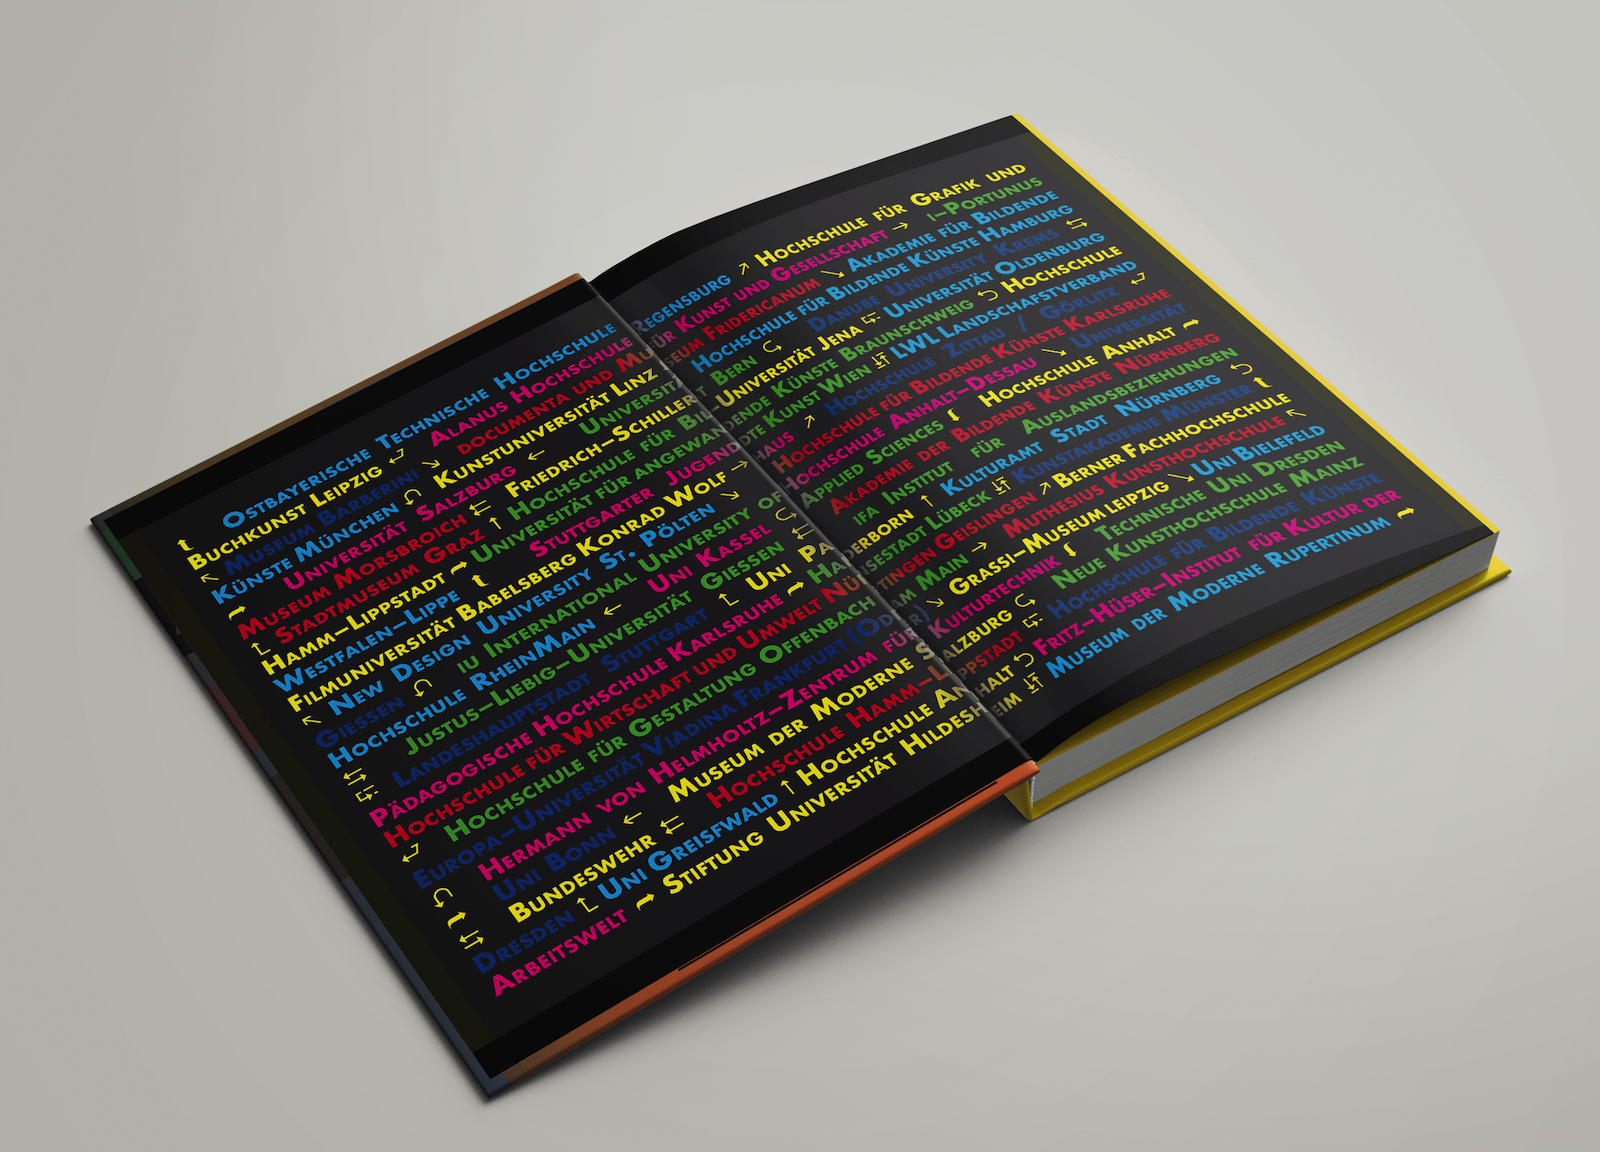 Ostbayerische Technische Hochschule Regensburg ↗ Hochschule für Grafik und
Buchkunst Leipzig ↵ Alanus Hochschule für Kunst und Gesellschaft → i–Portunus
Museum Barberini ↘ documenta und Museum Fridericanum ↘ Akademie für Bildende
Künste München Kunstuniversität Linz Hochschule für Bildende Künste Hamburg
Universität Salzburg ← Universität Bern Danube University Krems
Museum Morsbroich Friedrich–Schiller–Universität Jena Universität Oldenburg
Stadtmuseum Graz ↑ Hochschule für Bildende Künste Braunschweig Hochschule
Hamm–Lippstadt Universität für angewandte Kunst Wien LWL Landschafstverband
Westfalen–Lippe Stuttgarter Jugendhaus ↗ Hochschule Zittau / Görlitz
Filmuniversität Babelsberg Konrad Wolf → Hochschule für Bildende Künste Karlsruhe
New Design University St. Pölten ↘ Hochschule Anhalt–Dessau ↘ Universität
Giessen IU International University of Applied Sciences Hochschule Anhalt
Hochschule RheinMain ← Uni Kassel Akademie der Bildende Künste Nürnberg
Justus–Liebig–Universität Giessen ifa Institut für Auslandsbeziehungen
Landeshauptstadt Stuttgart Uni Paderborn ↑ Kulturamt Stadt Nürnberg
Pädagogische Hochschule Karlsruhe Hansestadt Lübeck Kunstakademie Münster
Hochschule für Wirtschaft und Umwelt Nürtingen Geislingen ↗ Berner Fachhochschule
Hochschule für Gestaltung Offenbach am Main → Muthesius Kunsthochschule
Europa–Universität Viadina Frankfurt (Oder) ↘ Grassi–Museum Leipzig ↘ Uni Bielefeld
Hermann von Helmholtz–Zentrum für Kulturtechnik Technische Uni Dresden
Uni Bonn ← Museum der Moderne Salzburg Neue Kunsthochschule Mainz
Bundeswehr Hochschule Hamm–Lippstadt Hochschule für Bildende Künste
Dresden Uni Greisfwald ↑ Hochschule Anhalt Fritz–Hüser–Institut für Kultur der
Arbeitswelt Stiftung Universität Hildesheim Museum der Moderne Rupertinum